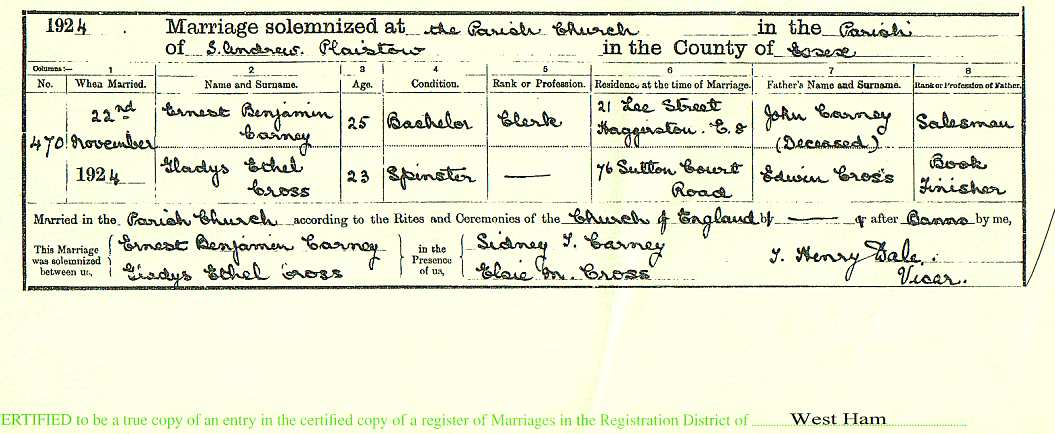 1924 Marriage solemnized at the Parish Church in the Parish
of S. Andrew. Plaistow in the County of Essex
Columns:— 1 2 3 4 5 6 7 8
No. When Married. Name and Surname. Age. Condition. Rank or Profession. Residence at the time of Marriage. Father's Name and Surname. Rank or Profession of Father.
470 22nd November 1924
Ernest Benjamin Carney 25 Bachelor Clerk 21 Lee Street Haggerston. E.8 John Carney (Deceased) Salesman
Gladys Ethel Cross 23 Spinster — 76 Sutton Court Road Edwin Cross Book Finisher
Married in the Parish Church according to the Rites and Ceremonies of the Church of England by — or after Banns by me,
This Marriage was solemnized between us, Ernest Benjamin Carney in the Presence of us, Sidney T. Carney T. Henry Dale.
Gladys Ethel Cross Elsie M. Cross Vicar.
CERTIFIED to be a true copy of an entry in the certified copy of a register of Marriages in the Registration District of West Ham